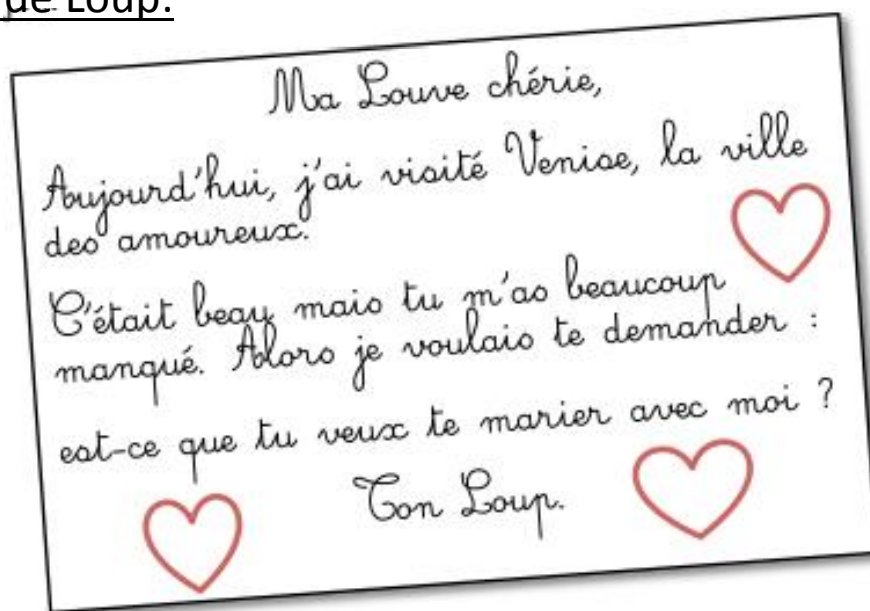 de Loup.
Ma Louve chérie,
Aujourd'hui, j'ai visité Venise, la ville
des amoureux.
C'était beau mais tu m'as beaucoup
manqué. Alors je voulais te demander :
est-ce que tu veux te marier avec moi ?
Ton Loup.